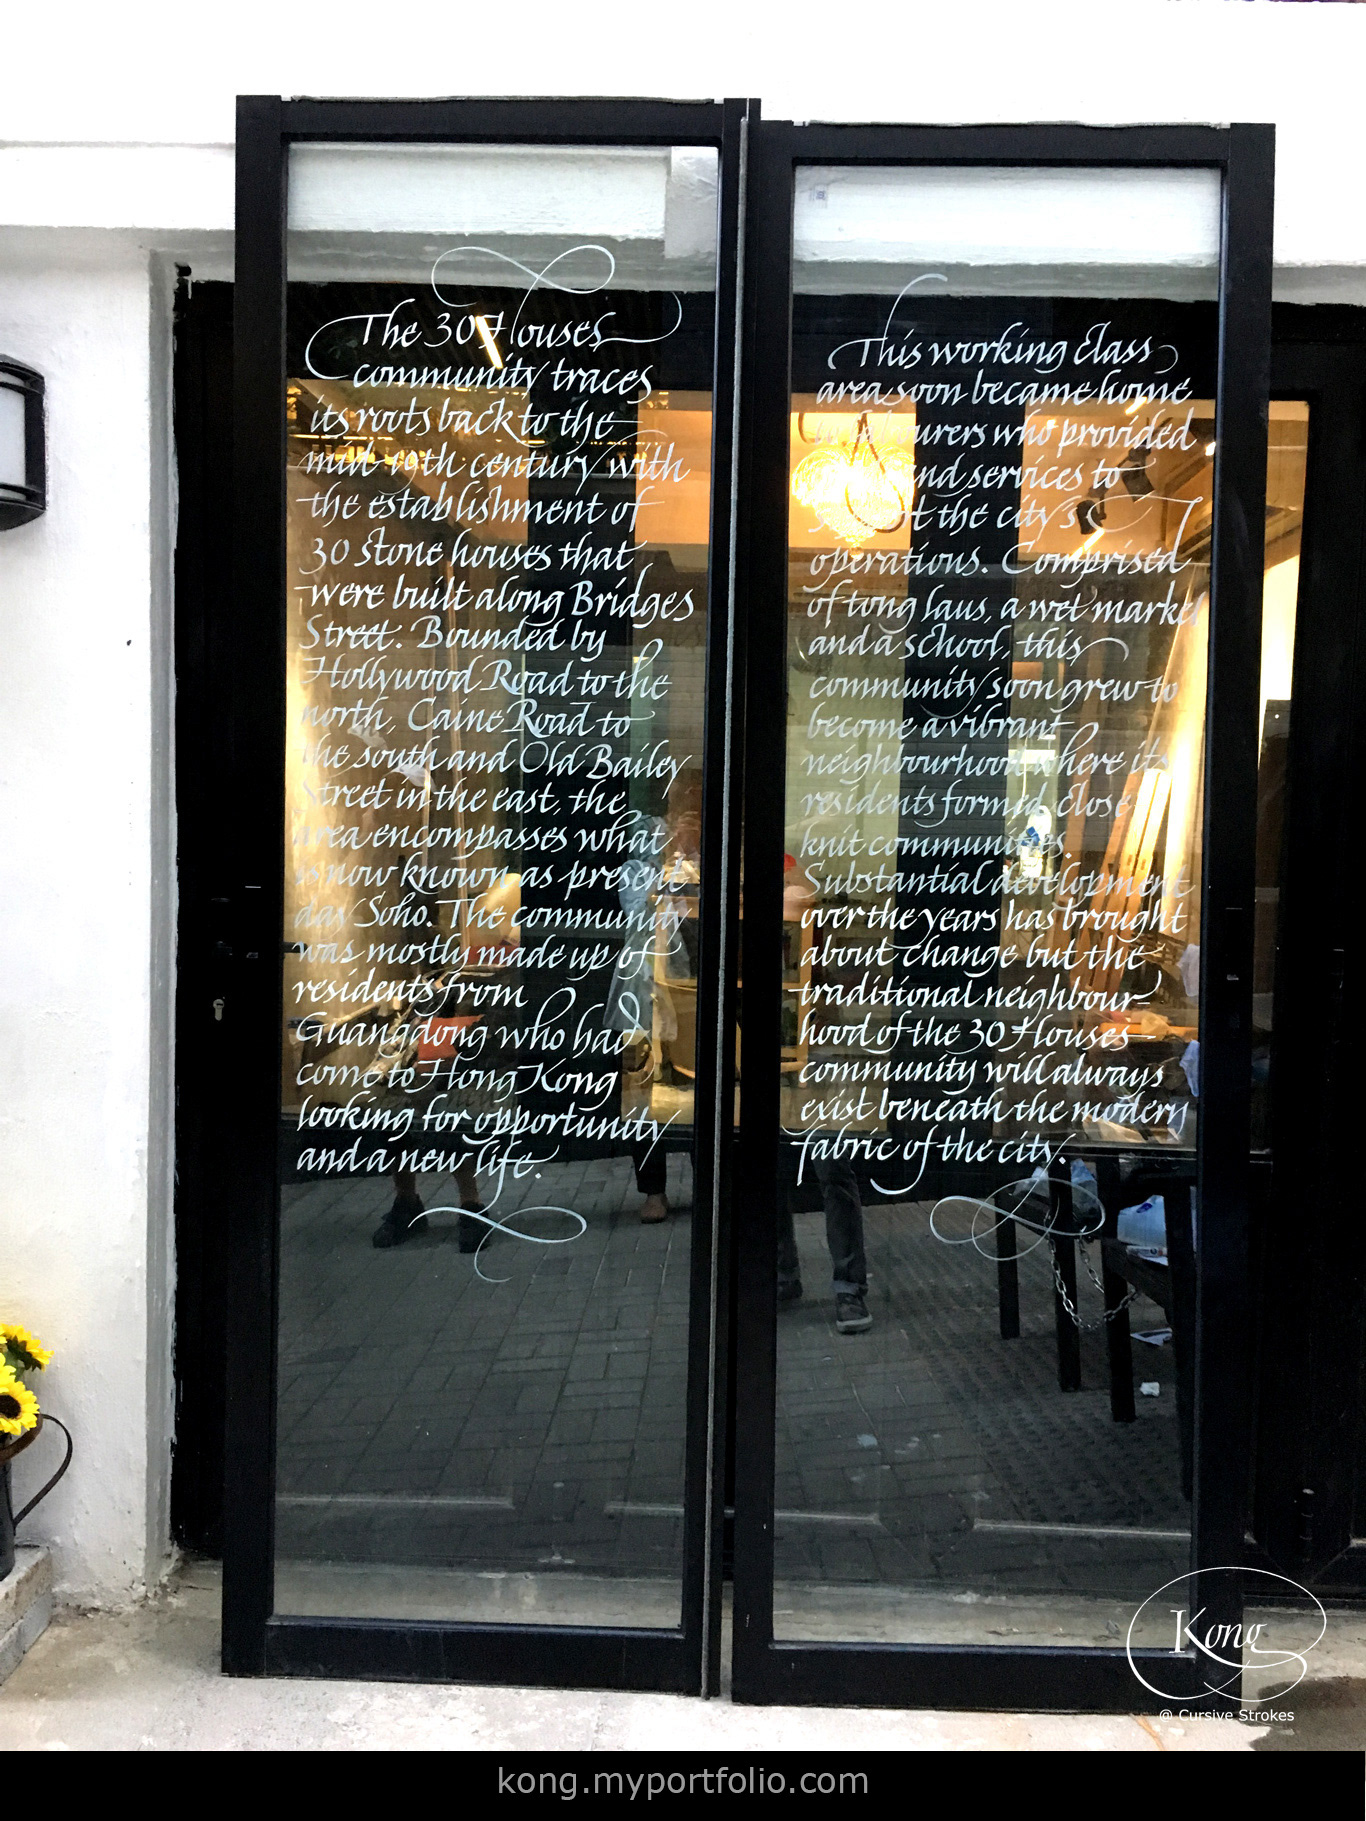 The 30 Houses
community traces
its roots back to the
mid 19th century with
the establishment of
30 stone houses that
were built along Bridges
Street. Bounded by
Hollywood Road to the
north, Caine Road to
the south and Old Bailey
Street in the east, the
area encompasses what
is now known as present
day Soho. The community
was mostly made up of
residents from
Guangdong who had
come to Hong Kong
looking for opportunity
and a new life.
This working class
area soon became home
to labourers who provided
and services to
the city's
operations. Comprised
of tong laus, a wet market
and a school, this
community soon grew to
become a vibrant
neighbourhood where its
residents formed close
knit communities.
Substantial development
over the years has brought
about change but the
traditional neighbour-
hood of the 30 Houses
community will always
exist beneath the modern
fabric of the city.
Kong
@ Cursive Strokes
kong.myportfolio.com